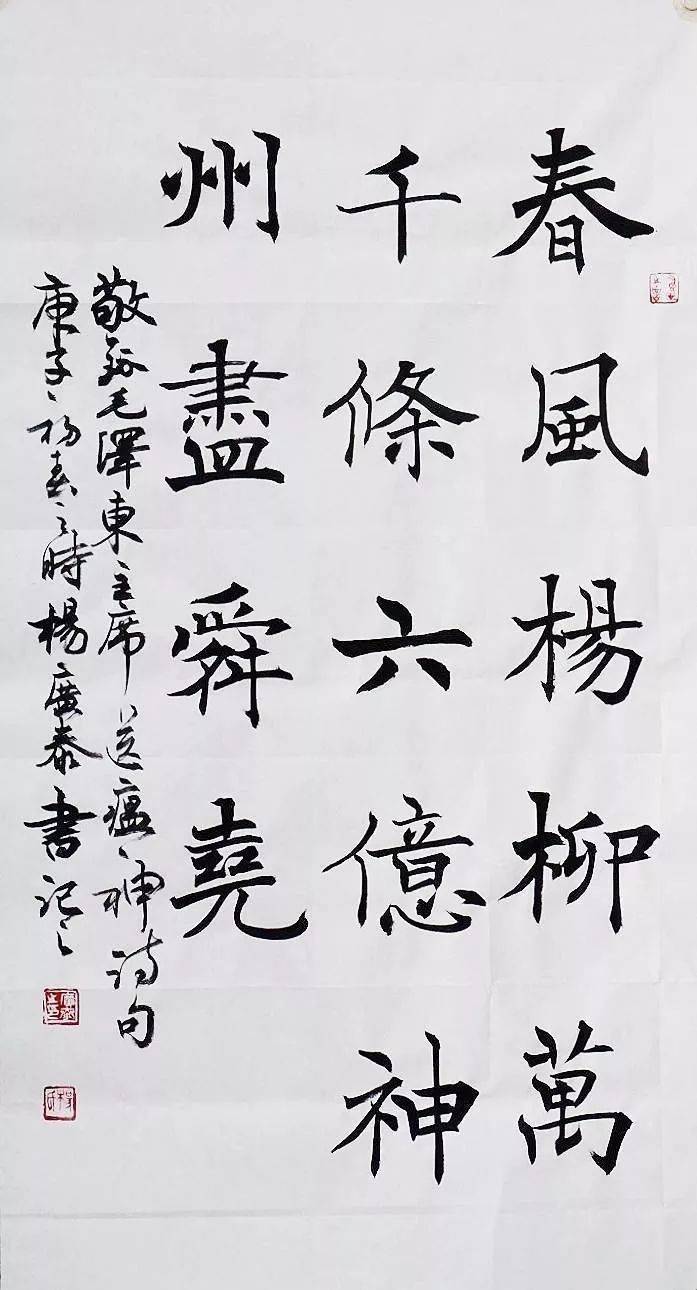 春風楊柳萬
千條六億神
州盡舜堯
敬錄毛澤東主席送瘟神詩句
庚子陽春之時楊廣泰書記之